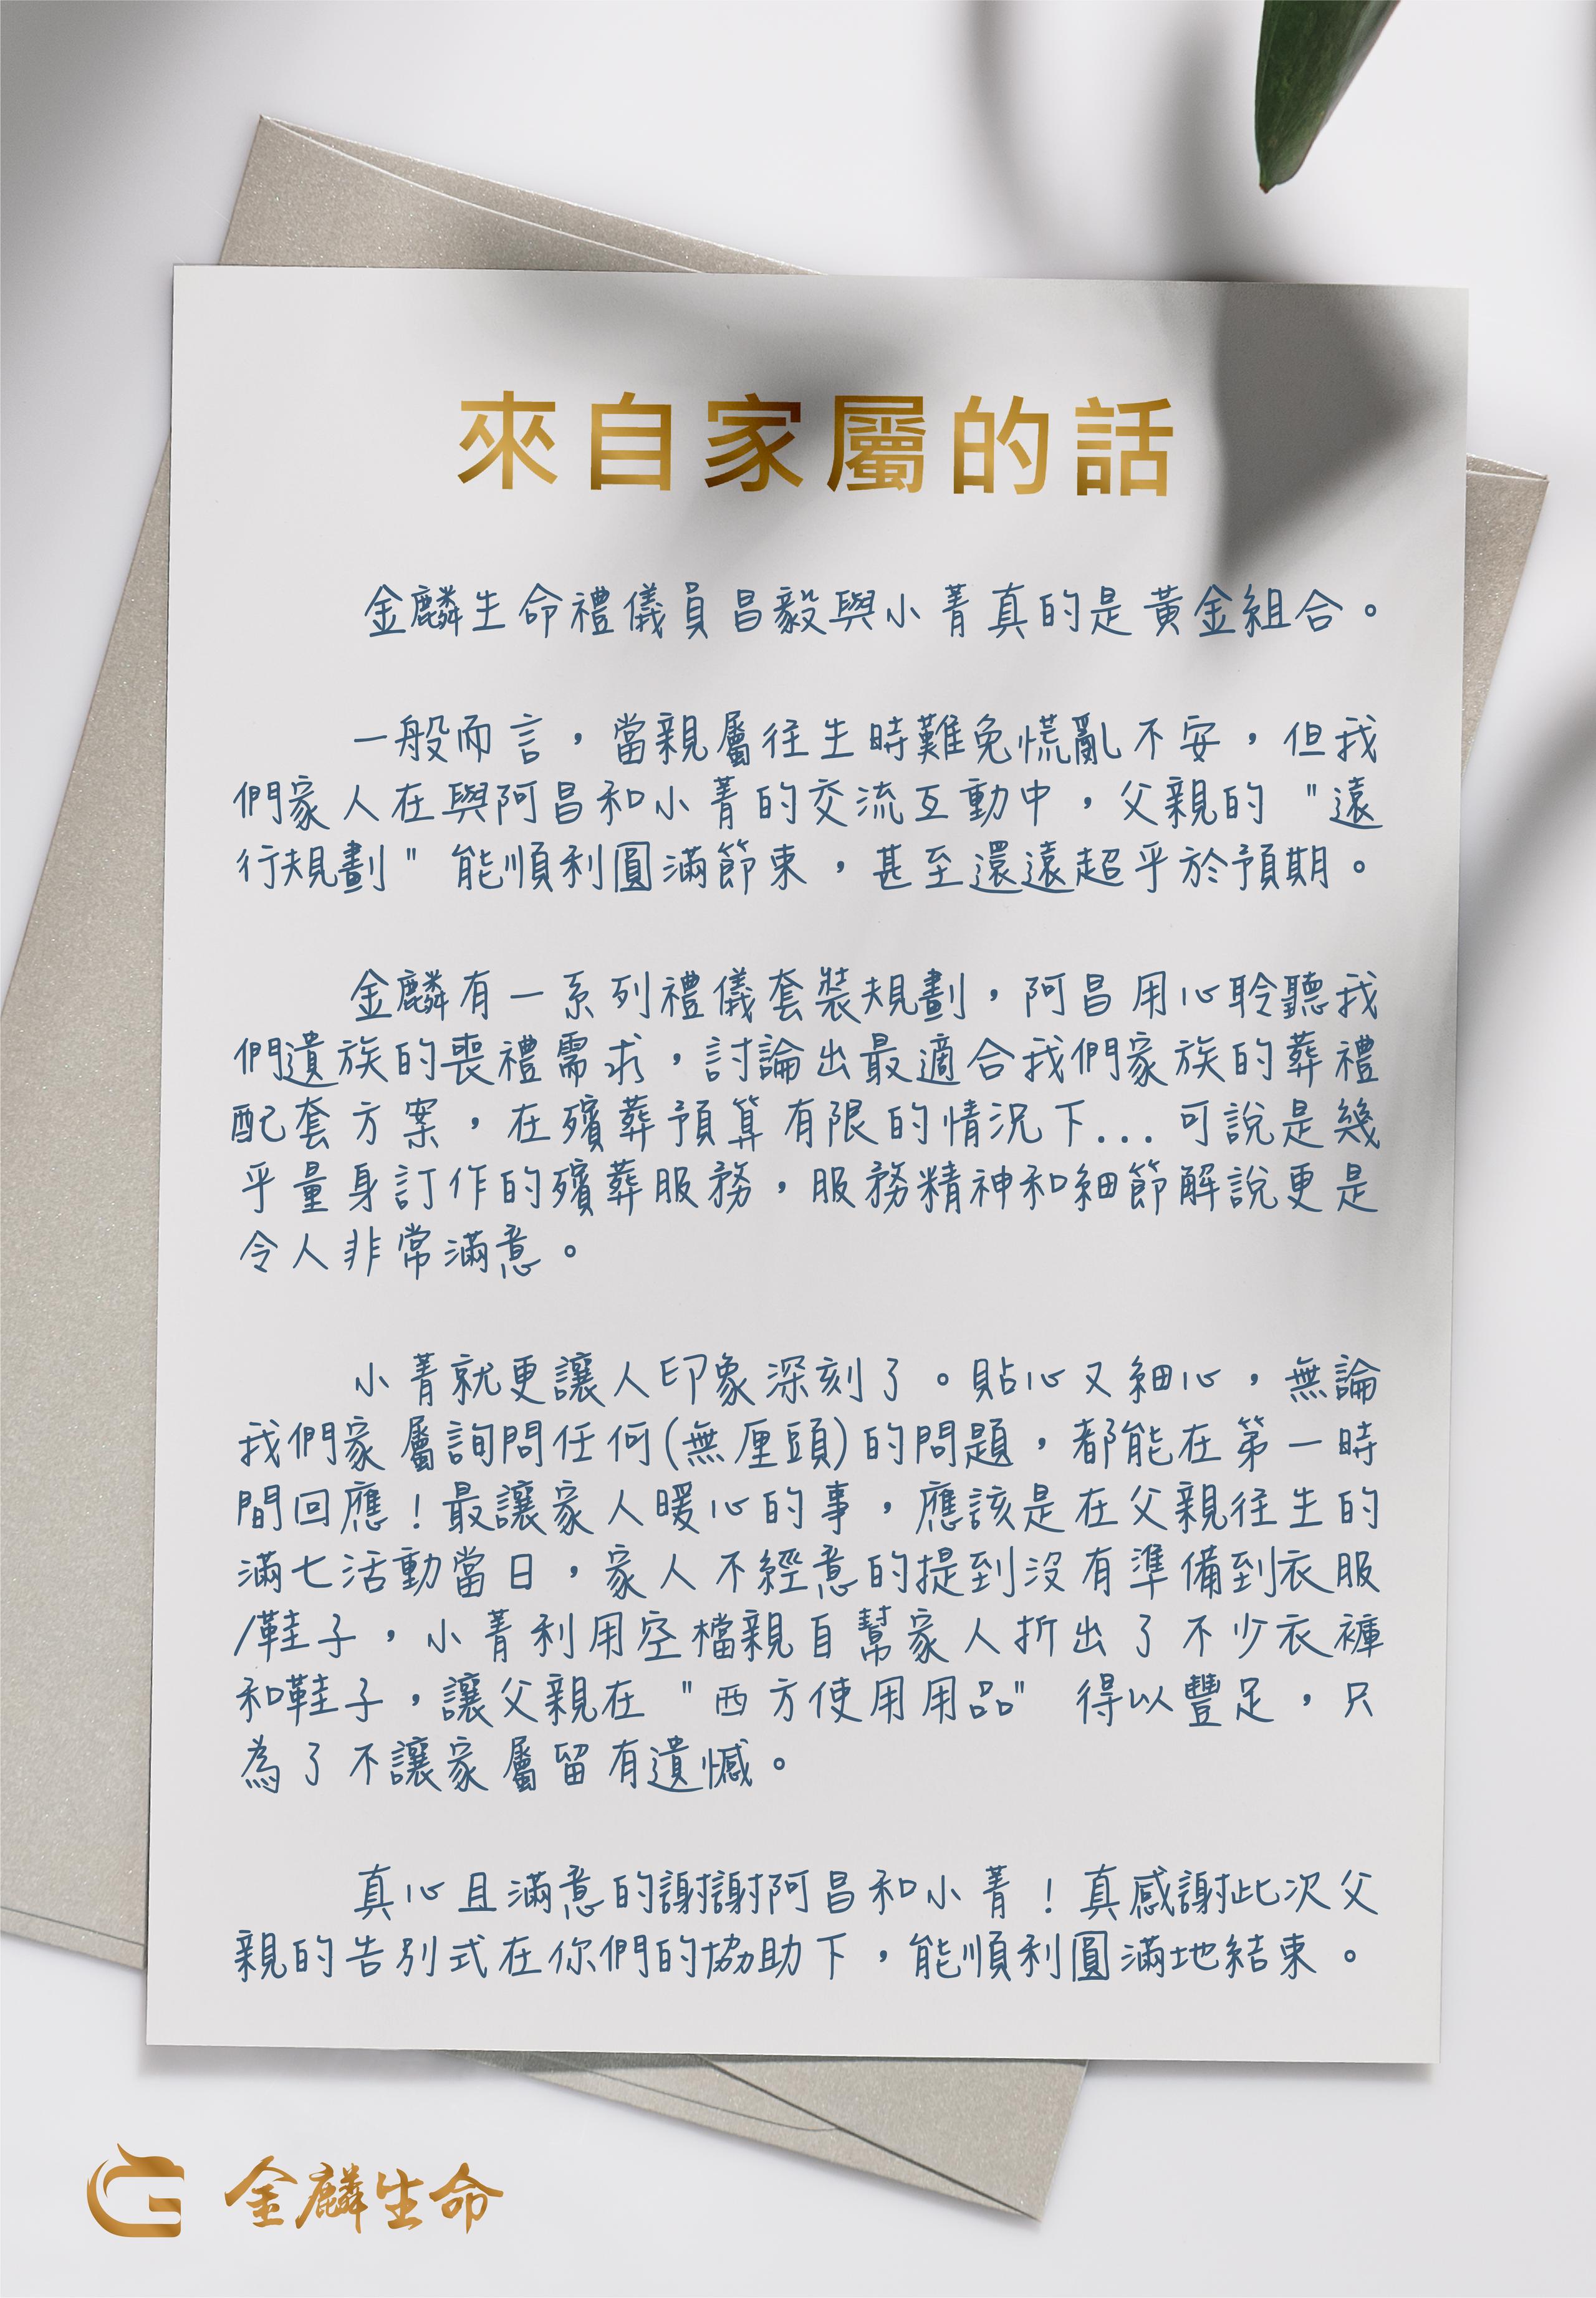 來自家屬的話
金麟生命禮儀員昌毅與小菁真的是黃金組合。
一般而言，當親屬往生時難免慌亂不安，但我
們家人在與阿昌和小菁的交流互動中，父親的 "遠
行規劃" 能順利圓滿節束，甚至還遠超乎於預期。
金麟有一系列禮儀套裝規劃，阿昌用心聆聽我
們遺族的喪禮需求，討論出最適合我們家族的葬禮
配套方案，在殯葬預算有限的情況下...可說是幾
乎量身訂作的殯葬服務，服務精神和細節解說更是
令人非常滿意。
小菁就更讓人印象深刻了。貼心又細心，無論
我們家屬詢問任何(無厘頭)的問題，都能在第一時
間回應！最讓家人暖心的事，應該是在父親往生的
滿七活動當日，家人不經意的提到沒有準備到衣服
/鞋子，小菁利用空檔親自幫家人折出了不少衣褲
和鞋子，讓父親在 "西方使用用品" 得以豐足，只
為了不讓家屬留有遺憾。
真心且滿意的謝謝阿昌和小菁！真感謝此次父
親的告別式在你們的協助下，能順利圓滿地結束。
金麟生命